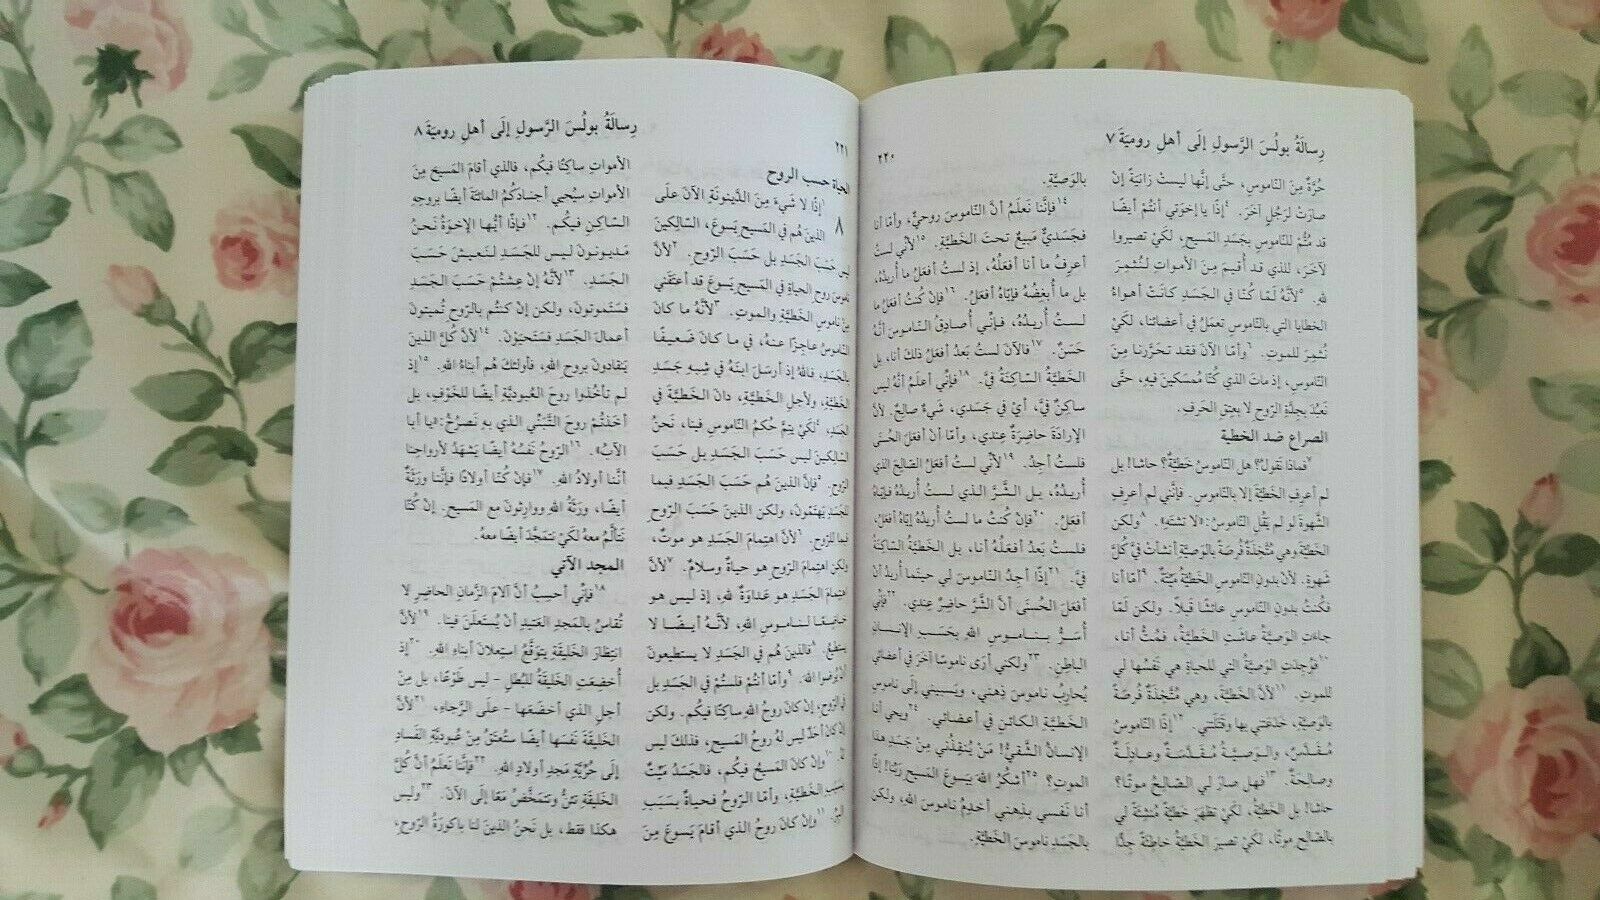 رِسالَةُ بولُسَ الرَّسولِ إلَى أهلِ روميَةَ ٧
٢٢٠
حُرَّةٌ مِنَ النّاموسِ، حتَّى إنَّها ليستْ زانيَةً إنْ
صارَتْ لرَجُلٍ آخَرَ. ٤إذًا يا إخوَتي أنتُمْ أيضًا
قد مُتُّمْ للنّاموسِ بجَسَدِ المَسيحِ، لكَيْ تصيروا
لآخَرَ، للذي قد أُقيمَ مِنَ الأمواتِ لنُثمِرَ
للهِ. ٥لأنَّهُ لَمّا كُنّا في الجَسَدِ كانَتْ أهواءُ
الخطايا التي بالنّاموسِ تعمَلُ في أعضائنا، لكَيْ
نُثمِرَ للموتِ. ٦وأمّا الآنَ فقد تحَرَّرنا مِنَ
النّاموسِ، إذ ماتَ الذي كُنّا مُمسَكينَ فيهِ، حتَّى
نَعبُدَ بجِدَّةِ الرّوحِ لا بعِتقِ الحَرفِ.
الصراع ضد الخطية
٧فماذا نَقولُ؟ هل النّاموسُ خَطيَّةٌ؟ حاشا! بل
لم أعرِفِ الخَطيَّةَ إلا بالنّاموسِ. فإنَّني لم أعرِفِ
الشَّهوةَ لو لم يَقُلِ النّاموسُ: «لا تشتَهِ». ٨ولكن
الخَطيَّةَ وهي مُتَّخِذَةٌ فُرصَةً بالوَصيَّةِ أنشأتْ فيَّ كُلَّ
شَهوةٍ. لأنْ بدونِ النّاموسِ الخَطيَّةُ مَيِّتَةٌ. ٩أمّا أنا
فكُنتُ بدونِ النّاموسِ عائشًا قَبلًا. ولكن لَمّا
جاءَتِ الوَصيَّةُ عاشَتِ الخَطيَّةُ، فمُتُّ أنا،
١٠فوُجِدَتِ الوَصيَّةُ التي للحياةِ هي نَفسُها لي
للموتِ. ١١لأنَّ الخَطيَّةَ، وهي مُتَّخِذَةٌ فُرصَةً
بالوَصيَّةِ، خَدَعَتني بها وقَتَلَتني. ١٢إذًا النّاموسُ
مُقَدَّسٌ، والوَصيَّةُ مُقَدَّسَةٌ وعادِلَةٌ
وصالِحَةٌ. ١٣فهل صارَ لي الصّالِحُ موتًا؟
حاشا! بل الخَطيَّةُ، لكَيْ تظهَرَ خَطيَّةً مُنشِئَةً لي
بالصّالِحِ موتًا، لكَيْ تصيرَ الخَطيَّةُ خاطِئَةً جِدًّا
بالوَصيَّةِ.
١٤فإنَّنا نَعلَمُ أنَّ النّاموسَ روحيٌّ، وأمّا أنا
فجَسَديٌّ مَبيعٌ تحتَ الخَطيَّةِ. ١٥لأنّي لستُ
أعرِفُ ما أنا أفعَلُهُ، إذ لستُ أفعَلُ ما أُريدُهُ،
بل ما أُبغِضُهُ فإيّاهُ أفعَلُ. ١٦فإنْ كُنتُ أفعَلُ ما
لستُ أُريدُهُ، فإنّي أُصادِقُ النّاموسَ أنَّهُ
حَسَنٌ. ١٧فالآنَ لستُ بَعدُ أفعَلُ ذلكَ أنا، بل
الخَطيَّةُ السّاكِنَةُ فيَّ. ١٨فإنّي أعلَمُ أنَّهُ ليس
ساكِنٌ فيَّ، أيْ في جَسَدي، شَيءٌ صالِحٌ. لأنَّ
الإرادَةَ حاضِرَةٌ عِندي، وأمّا أنْ أفعَلَ الحُسنَى
فلستُ أجِدُ. ١٩لأنّي لستُ أفعَلُ الصّالِحَ الذي
أُريدُهُ، بل الشَّرَّ الذي لستُ أُريدُهُ فإيّاهُ
أفعَلُ. ٢٠فإنْ كُنتُ ما لستُ أُريدُهُ إيّاهُ أفعَلُ،
فلستُ بَعدُ أفعَلُهُ أنا، بل الخَطيَّةُ السّاكِنَةُ
فيَّ. ٢١إذًا أجِدُ النّاموسَ لي حينَما أُريدُ أنْ
أفعَلَ الحُسنَى أنَّ الشَّرَّ حاضِرٌ عِندي. ٢٢فإنّي
أُسَرُّ بناموسِ اللهِ بحَسَبِ الإنسانِ
الباطِنِ. ٢٣ولكني أرَى ناموسًا آخَرَ في أعضائي
يُحارِبُ ناموسَ ذِهني، ويَسبيني إلَى ناموسِ
الخَطيَّةِ الكائنِ في أعضائي. ٢٤ويحي أنا
الإنسانُ الشَّقيُّ! مَنْ يُنقِذُني مِنْ جَسَدِ هذا
الموتِ؟ ٢٥أشكُرُ اللهَ بيَسوعَ المَسيحِ رَبِّنا! إذًا
أنا نَفسي بذِهني أخدِمُ ناموسَ اللهِ، ولكن
بالجَسَدِ ناموسَ الخَطيَّةِ.
رِسالَةُ بولُسَ الرَّسولِ إلَى أهلِ روميَةَ ٨
٢٢١
الحياة حسب الروح
٨ ١إذًا لا شَيءَ مِنَ الدَّينونَةِ الآنَ علَى
الذينَ هُم في المَسيحِ يَسوعَ، السّالِكينَ
ليس حَسَبَ الجَسَدِ بل حَسَبَ الرّوحِ. ٢لأنَّ
ناموسَ روحِ الحياةِ في المَسيحِ يَسوعَ قد أعتَقَني
مِنْ ناموسِ الخَطيَّةِ والموتِ. ٣لأنَّهُ ما كانَ
النّاموسُ عاجِزًا عنهُ، في ما كانَ ضَعيفًا
بالجَسَدِ، فاللهُ إذ أرسَلَ ابنَهُ في شِبهِ جَسَدِ
الخَطيَّةِ، ولأجلِ الخَطيَّةِ، دانَ الخَطيَّةَ في
الجَسَدِ، ٤لكَيْ يتِمَّ حُكمُ النّاموسِ فينا، نَحنُ
السّالِكينَ ليس حَسَبَ الجَسَدِ بل حَسَبَ
الرّوحِ. ٥فإنَّ الذينَ هُم حَسَبَ الجَسَدِ فبما
للجَسَدِ يَهتَمّونَ، ولكن الذينَ حَسَبَ الرّوحِ
فبما للرّوحِ. ٦لأنَّ اهتِمامَ الجَسَدِ هو موتٌ،
ولكن اهتِمامَ الرّوحِ هو حياةٌ وسلامٌ. ٧لأنَّ
اهتِمامَ الجَسَدِ هو عَداوَةٌ للهِ، إذ ليس هو
خاضِعًا لناموسِ اللهِ، لأنَّهُ أيضًا لا
يستطيعُ. ٨فالذينَ هُم في الجَسَدِ لا يستطيعونَ
أنْ يُرضوا اللهَ. ٩وأمّا أنتُمْ فلستُمْ في الجَسَدِ بل
في الرّوحِ، إنْ كانَ روحُ اللهِ ساكِنًا فيكُم. ولكن
إنْ كانَ أحَدٌ ليس لهُ روحُ المَسيحِ، فذلكَ ليس
لهُ. ١٠وإنْ كانَ المَسيحُ فيكُم، فالجَسَدُ مَيِّتٌ
بسَبَبِ الخَطيَّةِ، وأمّا الرّوحُ فحياةٌ بسَبَبِ
البِرِّ. ١١وإنْ كانَ روحُ الذي أقامَ يَسوعَ مِنَ
الأمواتِ ساكِنًا فيكُم، فالذي أقامَ المَسيحَ مِنَ
الأمواتِ سيُحيي أجسادَكُمُ المائتَةَ أيضًا بروحِهِ
السّاكِنِ فيكُم. ١٢فإذًا أيُّها الإخوَةُ نَحنُ
مَديونونَ ليس للجَسَدِ لنَعيشَ حَسَبَ
الجَسَدِ. ١٣لأنَّهُ إنْ عِشتُمْ حَسَبَ الجَسَدِ
فستَموتونَ، ولكن إنْ كنتُم بالرّوحِ تُميتونَ
أعمالَ الجَسَدِ فستَحيَوْنَ. ١٤لأنَّ كُلَّ الذينَ
يَنقادونَ بروحِ اللهِ، فأولئكَ هُم أبناءُ اللهِ. ١٥إذ
لم تأخُذوا روحَ العُبوديَّةِ أيضًا للخَوْفِ، بل
أخَذتُمْ روحَ التَّبَنّي الذي بهِ نَصرُخُ: «يا أبا
الآبُ». ١٦الرّوحُ نَفسُهُ أيضًا يَشهَدُ لأرواحِنا
أنَّنا أولادُ اللهِ. ١٧فإنْ كُنّا أولادًا فإنَّنا ورَثَةٌ
أيضًا، ورَثَةُ اللهِ ووارِثونَ مع المَسيحِ. إنْ كُنّا
نَتألَّمُ معهُ لكَيْ نَتمَجَّدَ أيضًا معهُ.
المجد الآتي
١٨فإنّي أحسِبُ أنَّ آلامَ الزَّمانِ الحاضِرِ لا
تُقاسُ بالمَجدِ العَتيدِ أنْ يُستَعلَنَ فينا. ١٩لأنَّ
انتِظارَ الخَليقَةِ يتَوَقَّعُ استِعلانَ أبناءِ اللهِ. ٢٠إذ
أُخضِعَتِ الخَليقَةُ للبُطلِ - ليس طَوْعًا، بل مِنْ
أجلِ الذي أخضَعَها - علَى الرَّجاءِ، ٢١لأنَّ
الخَليقَةَ نَفسَها أيضًا ستُعتَقُ مِنْ عُبوديَّةِ الفَسادِ
إلَى حُرِّيَّةِ مَجدِ أولادِ اللهِ. ٢٢فإنَّنا نَعلَمُ أنَّ كُلَّ
الخَليقَةِ تئنُّ وتَتمَخَّضُ مَعًا إلَى الآنَ. ٢٣وليس
هكذا فقط، بل نَحنُ الذينَ لنا باكورَةُ الرّوحِ،